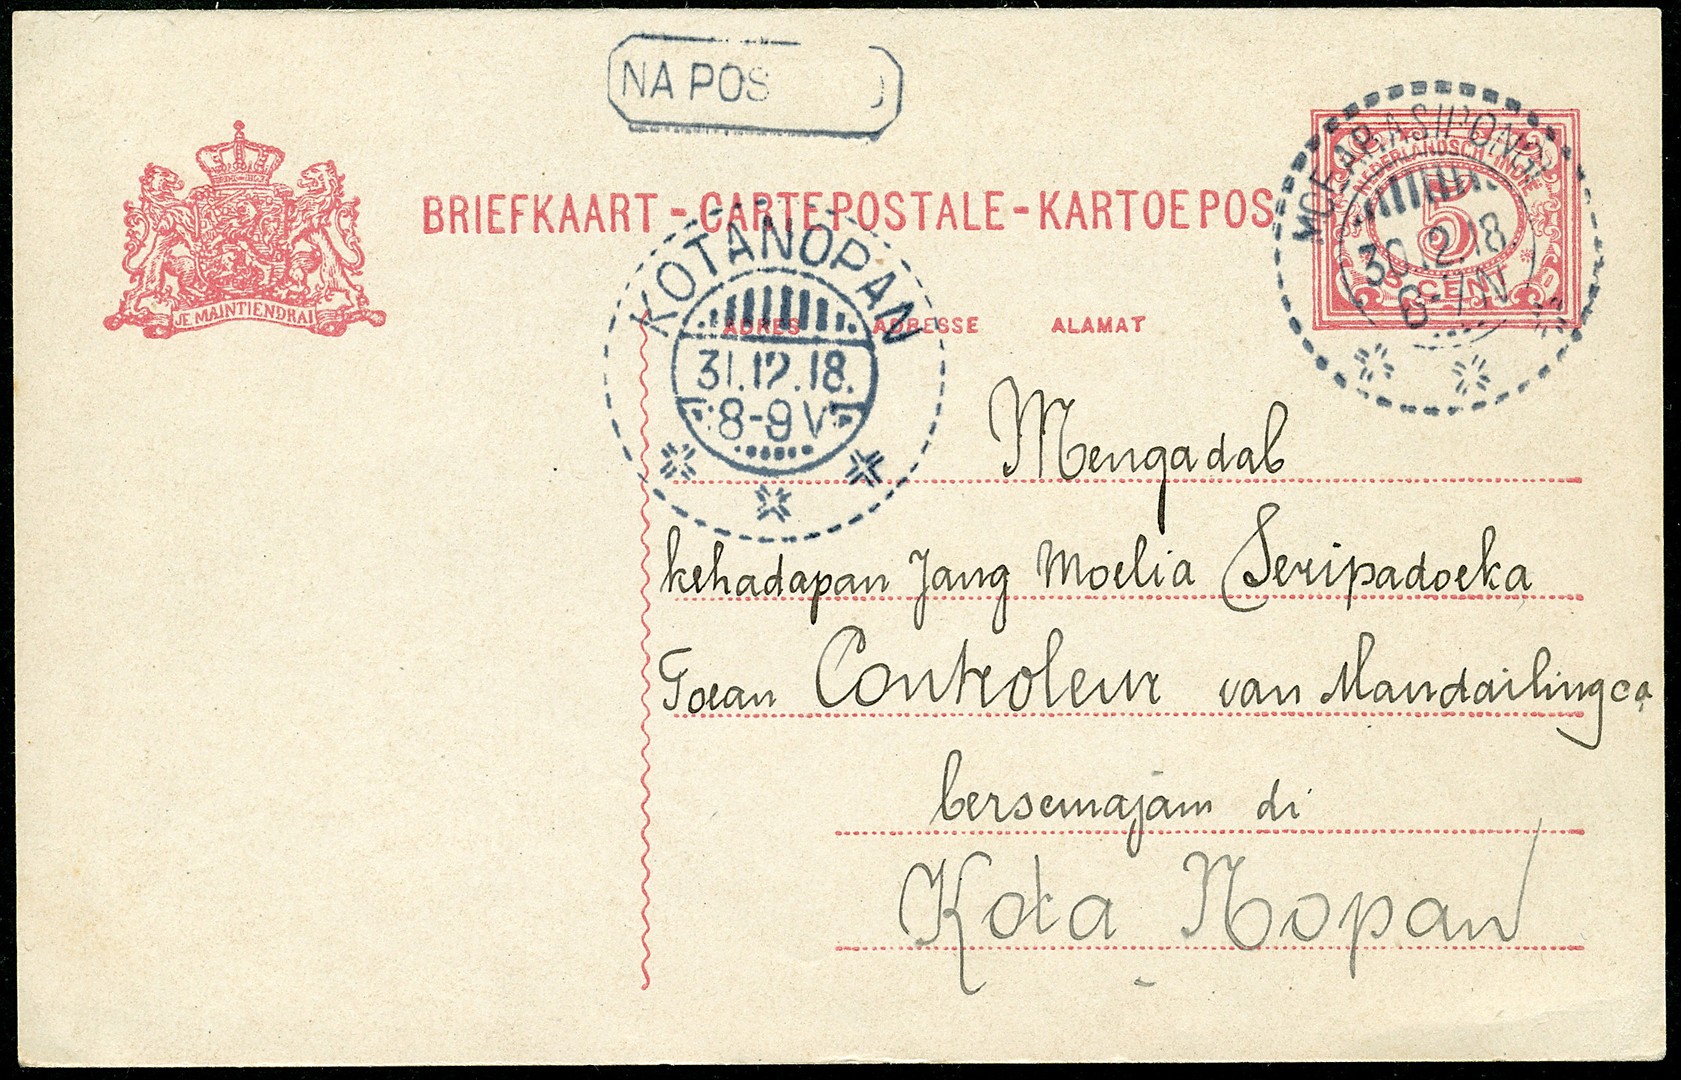 NA POS
BRIEFKAART - CARTE POSTALE - KARTOE POS
JE MAINTIENDRAI
NEDERLANDSCH-INDIË
5
5 CENT
MOEARASIPONGI
30.12.18
6-7 N
KOTANOPAN
31.12.18.
8-9 V
ADRES ADRESSE ALAMAT
Mengadab
kehadapan Jang Moelia Seripadoeka
Toean Controleur van Mandailing ca
bersemajam di
Kota Nopan